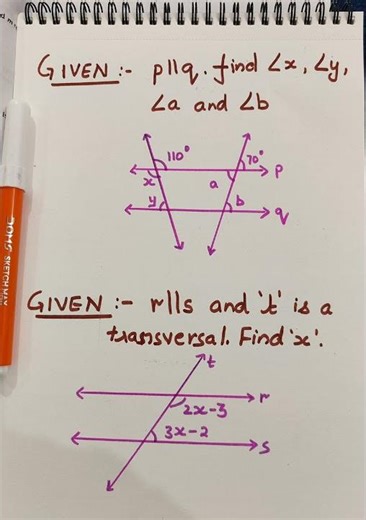 GIVEN :- p||q. find ∠x, ∠y,
∠a and ∠b
110°
70°
x
a
p
y
b
q
GIVEN :- r||s and 't' is a
transversal. Find 'x'.
t
r
2x-3
3x-2
s
DOMS SKETCH MAX